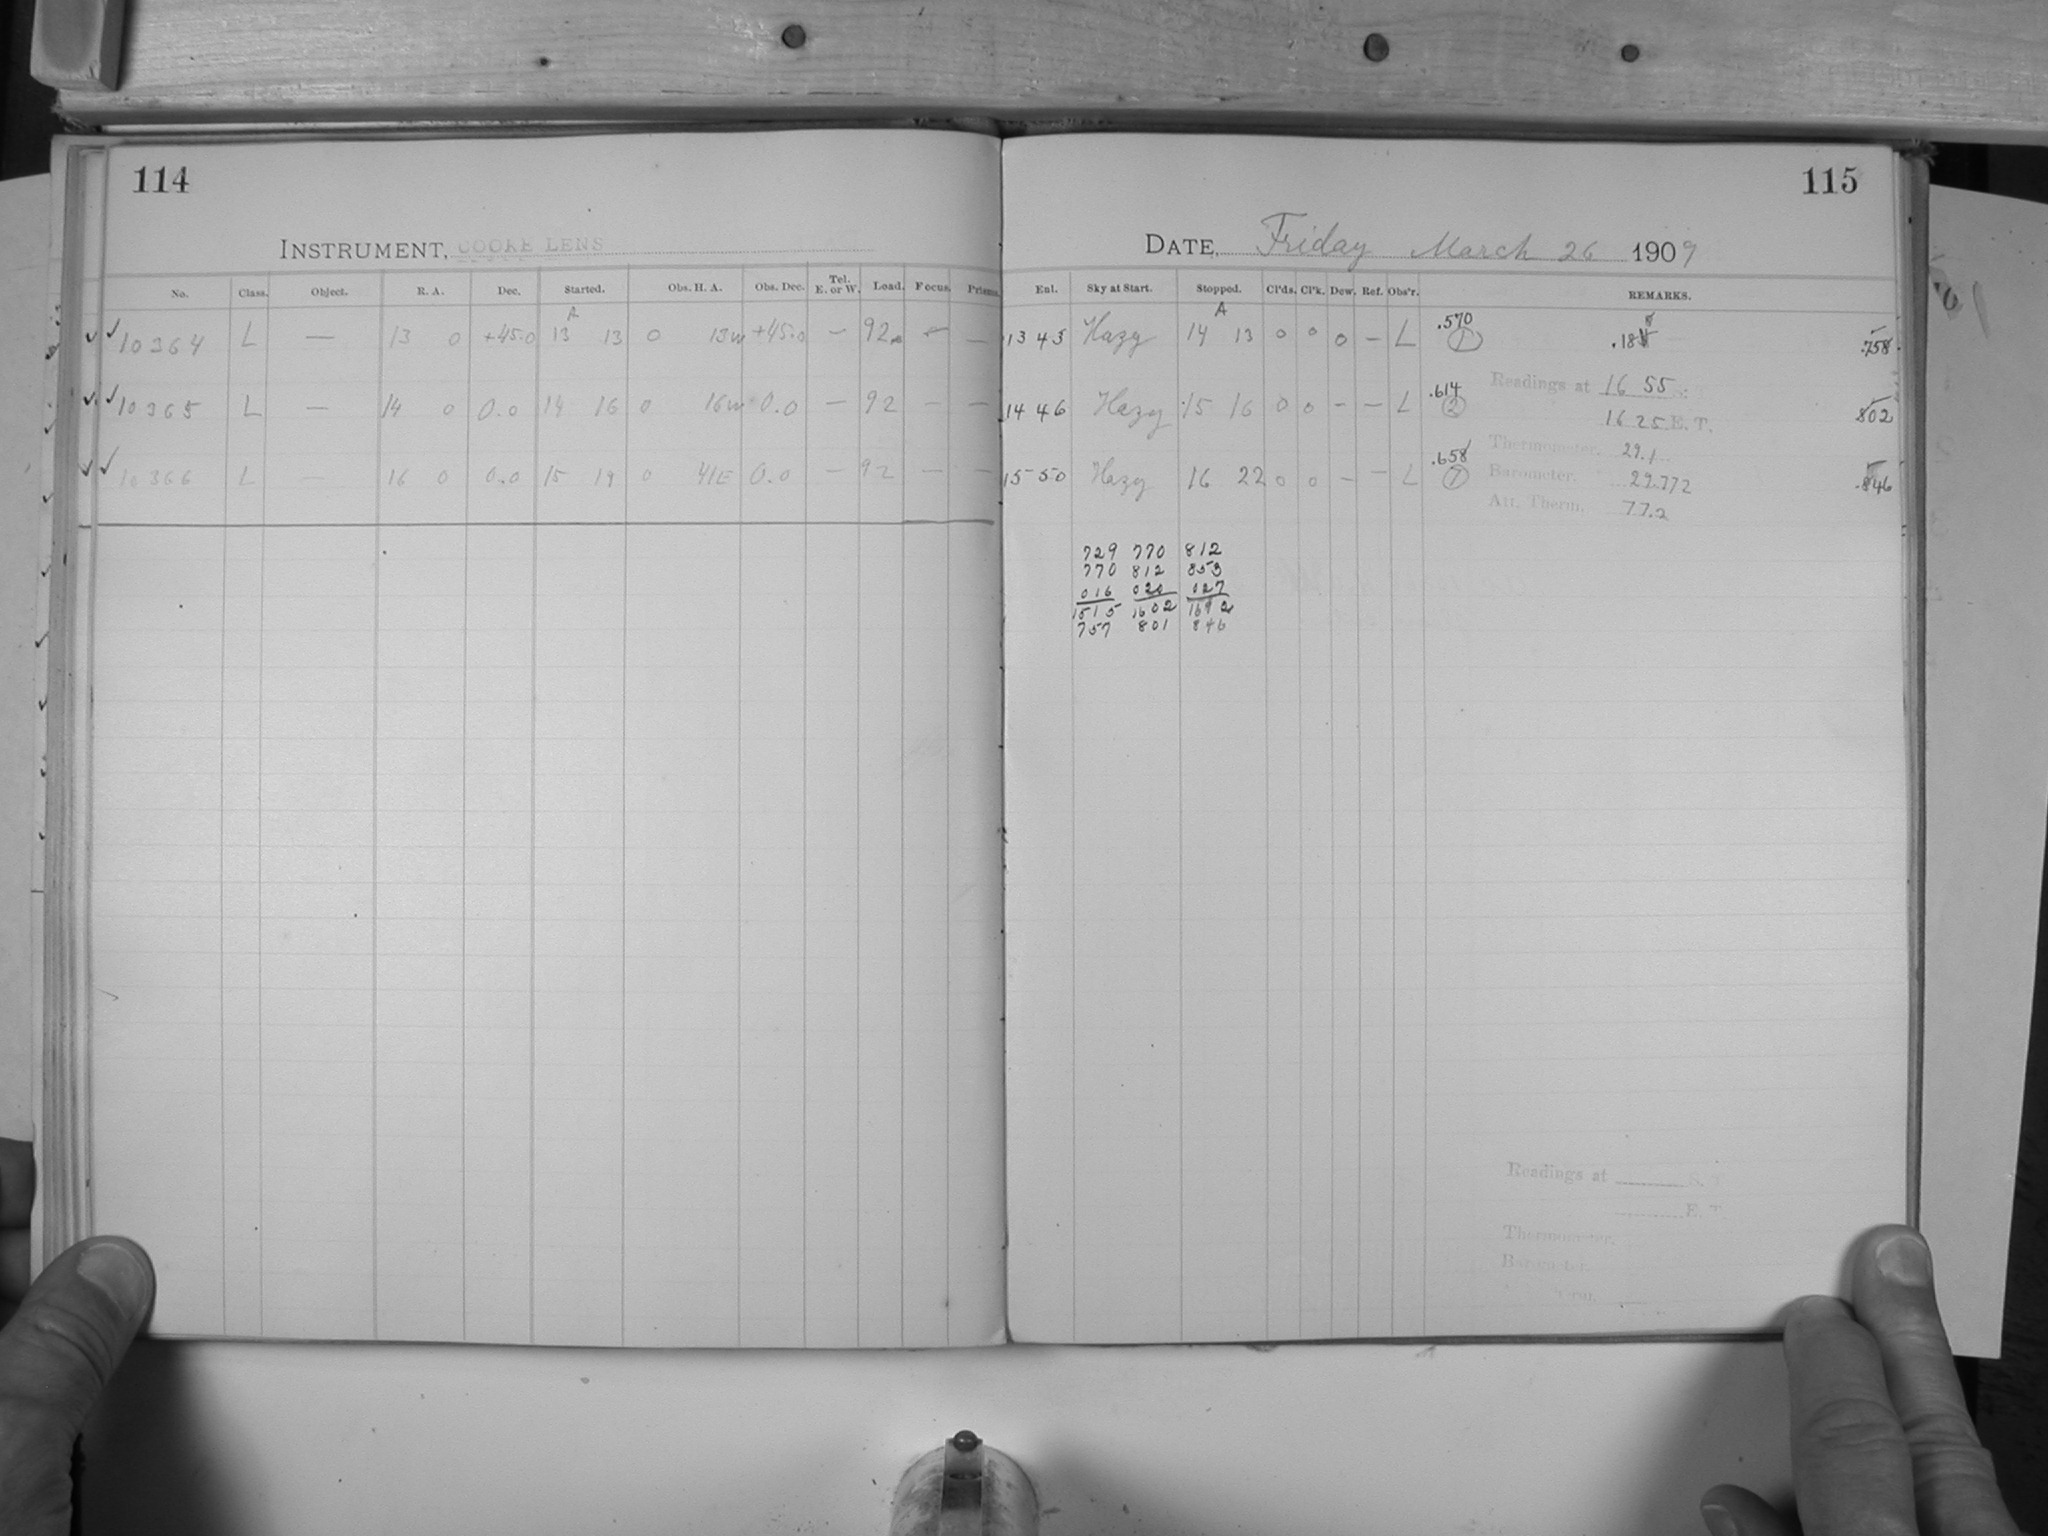 114
INSTRUMENT, COOKE LENS
No. Class. Object. R. A. Dec. Started. Obs. H. A. Obs. Dec. Tel. E. or W. Load. Focus. Prisms.
✓ ✓ 10364 L — 13 0 +45.0 13 13 0 13w +45.0 — 92 — —
✓ ✓ 10365 L — 14 0 0.0 14 16 0 16w 0.0 — 92 — —
✓ ✓ 10366 L — 16 0 0.0 15 19 0 41E 0.0 — 92 — —
115
DATE, Friday March 26 1909
Ent. Sky at Start. Stopped. Cl'ds. Cl'k. Dew. Ref. Obs'r. REMARKS.
A
13 43 Hazy 14 13 0 0 0 — L .570 1 .18 .758
Readings at 16 55 S.
14 46 Hazy 15 16 0 0 — — L .614 2 802
16 25 E. T.
Thermometer. 29.1
15 50 Hazy 16 22 0 0 — — L .658 .846
Barometer. 29.772
Att. Therm. 77.2
729 770 812
770 812 853
016 020 027
1515 1602 1692
757 801 846
Readings at S. T
E. T
Thermometer.
Barometer.